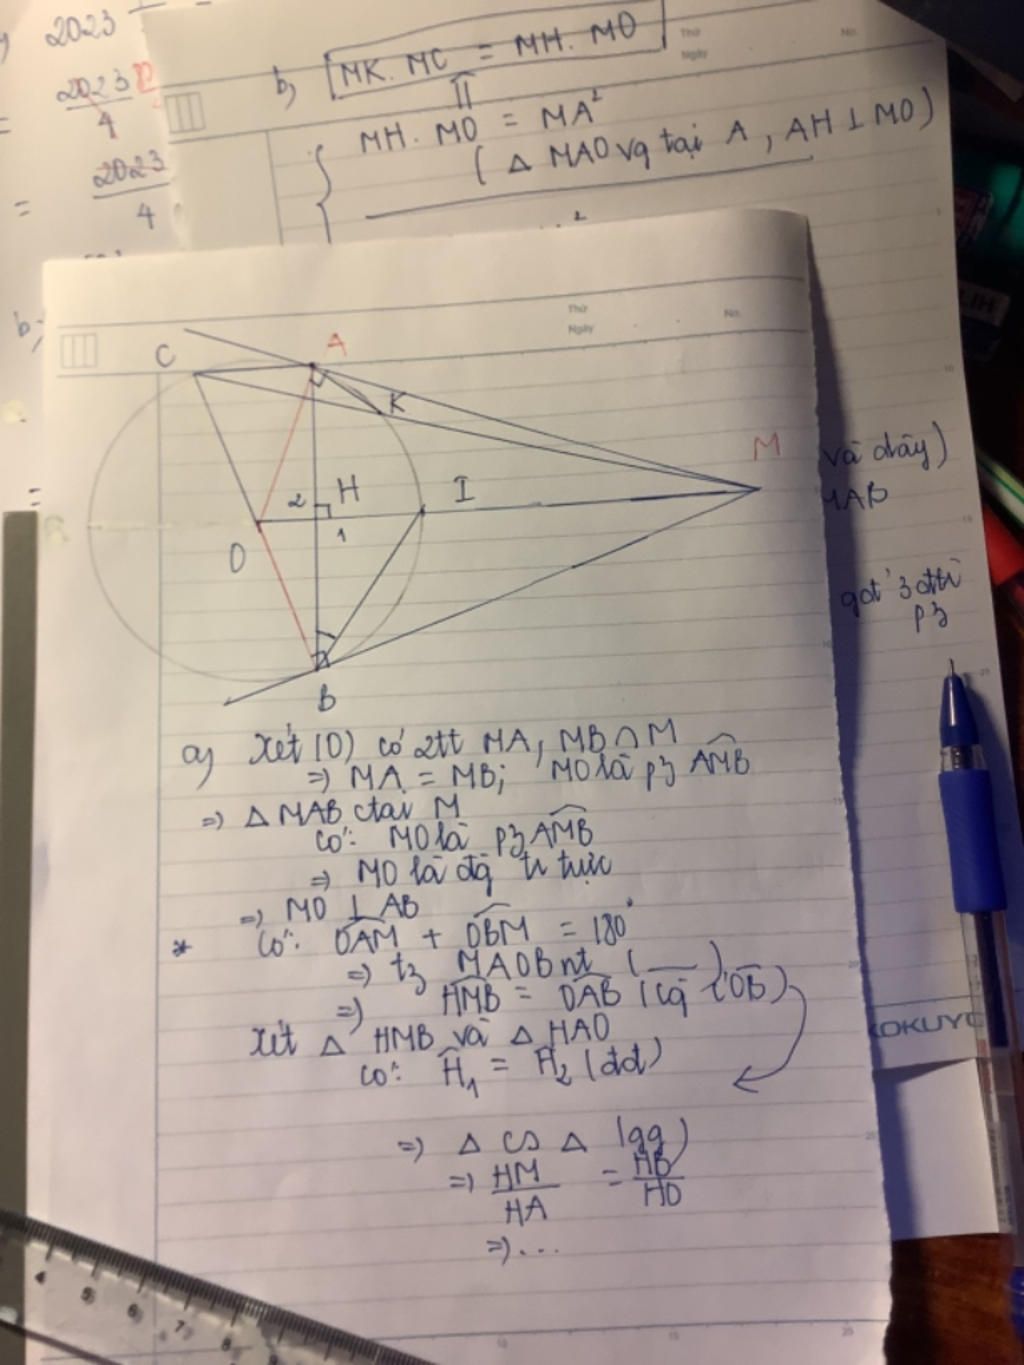 2023
2023
4
=
2023
4
=
b)
b, MK. MC = MH. MO
MH. MO = MA²
( Δ MAO vg tại A, AH ⊥ MO)
Thứ
Ngày
No.
Thứ
Ngày
No.
C
A
K
M
2
H
I
1
O
B
và dây)
MAB
3 đth
p3
a) Xét (O) có 2tt MA, MB ∩ M
=> MA = MB; MO là p3 AMB
=> Δ MAB ctại M
Có: MO là p3 AMB
=> MO là đg tr trực
=> MO ⊥ AB
* Có: OAM + OBM = 180°
=> t3 MAOB nt ( __ )
=> HMB = OAB (cg c OB)
Xét Δ HMB và Δ HAO
có: H₁ = H₂ (đđ)
=> Δ ∽ Δ (gg)
=> HM/HA = HB/HO
=> ...
KOKUYO
4 5 6 7 8